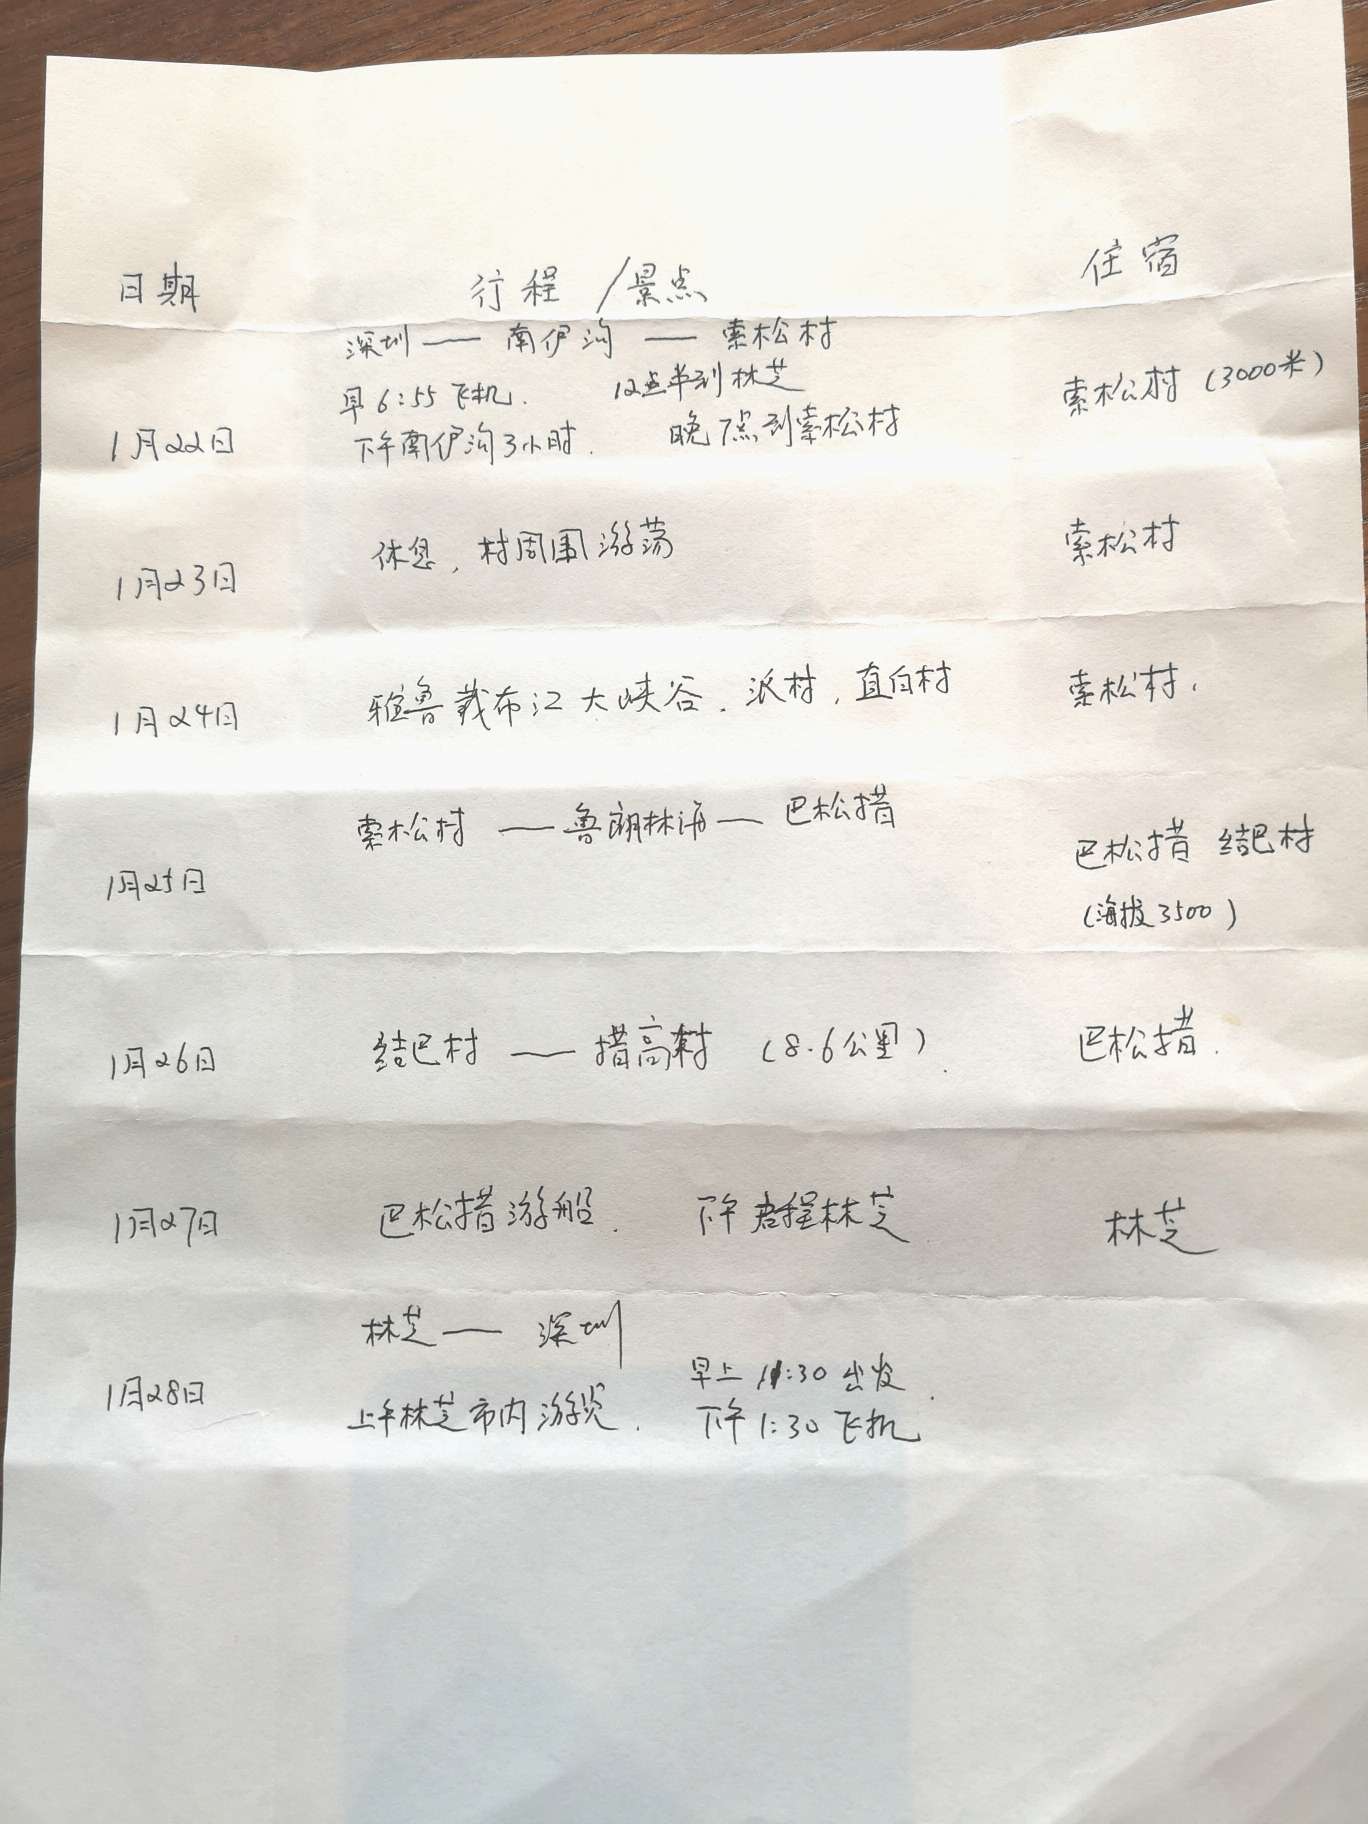 日期 行程/景点 住宿
深圳——南伊沟——索松村
早6:55飞机. 12点半到林芝
索松村(3000米)
1月22日 下午南伊沟3小时. 晚7点到索松村
1月23日 休息,村周围游荡 索松村
1月24日 雅鲁藏布江大峡谷.派村,直白村 索松村.
索松村——鲁朗林海——巴松措
1月25日 巴松措 结巴村
(海拔3500)
1月26日 结巴村——措高村(8.6公里). 巴松措.
1月27日 巴松措游船. 下午启程林芝 林芝
林芝——深圳
早上11:30出发.
1月28日 上午林芝市内游览. 下午1:30飞机